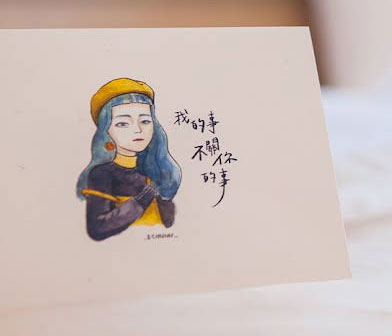 我的事
不關你
的事